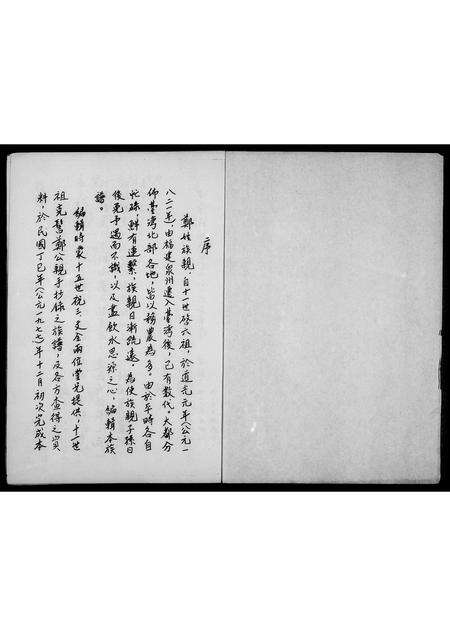 序
鄭姓族親，自十一世啓六祖，於道光元年（公元一
八二一年）由福建泉州遷入臺灣後，已有數代。大都分
佈臺灣北部各地，皆以務農為多。由於平時各自
忙碌，鮮有連繫，族親日漸疏遠，為使族親子孫日
後免于遇而不識，以及盡飲水思源之心，編輯本族
譜。
編輯時蒙十五世祝三、文金兩位堂兄提供，十一世
祖克 鄭公親手抄錄之族譜，及各方查得之實
料，於民國丁巳年（公元一九七七）年十二月初次完成本